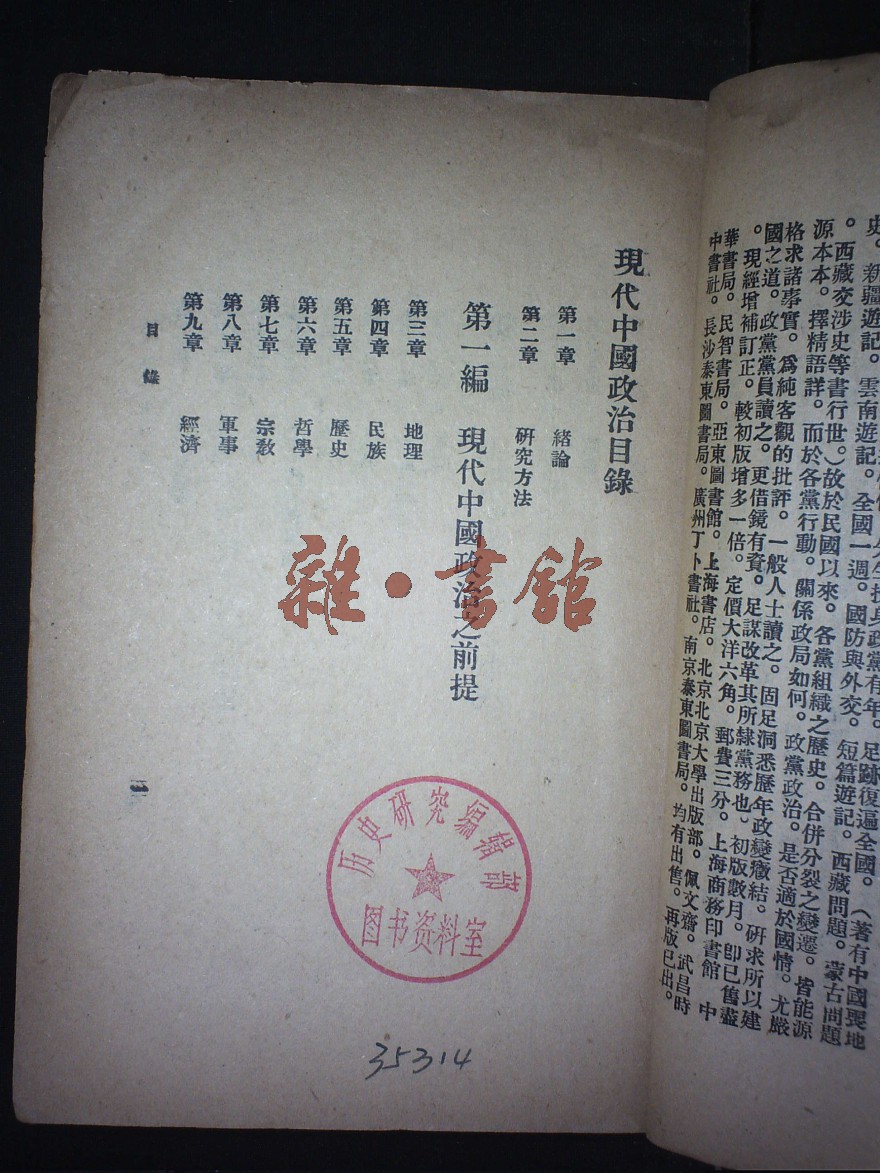 先生投身政黨有年。足跡復遍全國。（著有中國喪地
史。新疆遊記。雲南遊記。全國一週。國防與外交。短篇遊記。西藏問題。蒙古問題
。西藏交涉史等書行世。）故於民國以來。各黨組織之歷史。合併分裂之變遷。皆能源
源本本。擇精語詳。而於各黨行動。關係政局如何。政黨政治。是否適於國情。尤嚴
格求諸事實。爲純客觀的批評。一般人士讀之。固足洞悉歷年政變癥結。研求所以建
國之道。政黨黨員讀之。更借鏡有資。足謀改革其所隸黨務也。初版數月。卽已售盡
。現經增補訂正。較初版增多一倍。定價大洋六角。郵費三分。上海商務印書館 中
華書局。民智書局。亞東圖書館。上海書店。北京北京大學出版部。佩文齋。武昌時
中書社。長沙泰東圖書局。廣州丁卜書社。南京泰東圖書局。均有出售。再版已出。
現代中國政治目錄
第一章 緒論
第二章 研究方法
第一編 現代中國政治之前提
第三章 地理
第四章 民族
第五章 歷史
第六章 哲學
第七章 宗教
第八章 軍事
第九章 經濟
目錄
一
雜·書館
历史研究编辑部
图书资料室
35314